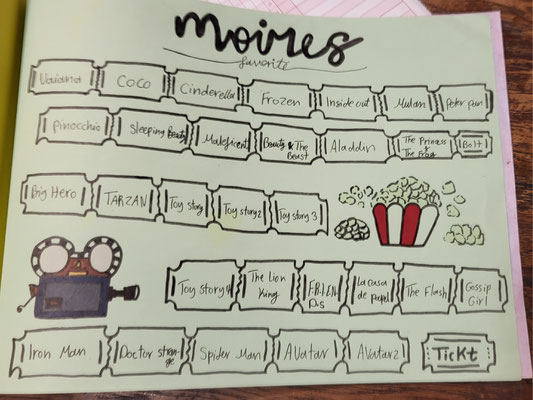 moires
favorite
Vaiana COCO Cinderella Frozen Inside out Mulan Peter pan
Pinocchio Sleeping Beauty Maleficent Beauty & The Beast Aladdin The Princess & The Frog Bolt
Big Hero TARZAN Toy story Toy story 2 Toy story 3
Toy story 4 The Lion King F.R.I.E.N.D.S La casa de papel The Flash Gossip Girl
Iron Man Doctor strange Spider Man AVatar AVatar2 TicKt